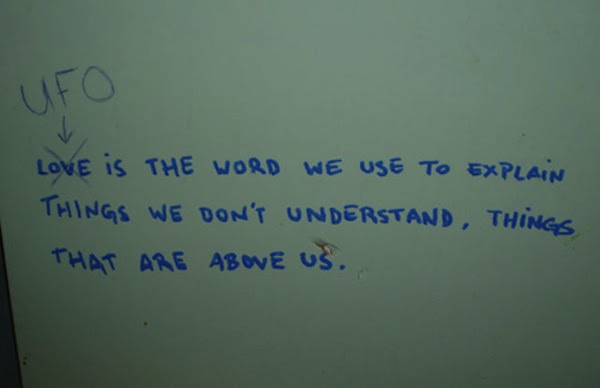 UFO
LOVE iS THE WORD WE USE TO EXPLAiN
THINGS WE DON'T UNDERSTAND, THiNGS
THAT ARE ABOVE US.